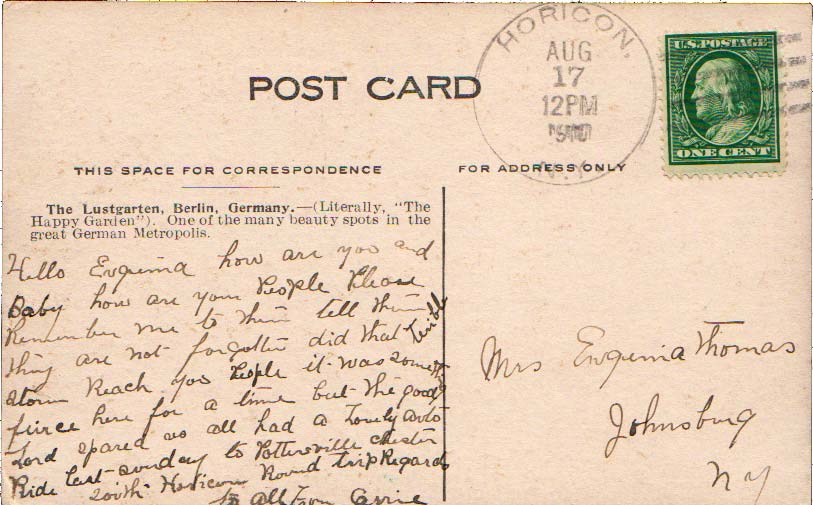 POST CARD
THIS SPACE FOR CORRESPONDENCE
The Lustgarten, Berlin, Germany.—(Literally, "The
Happy Garden"). One of the many beauty spots in the
great German Metropolis.
Hello Evquinia how are you and
Baby how are your People Please
Remember me to them tell them
thing are not forgotten did that terible
storm Reach you People it was something
fiirce here for a time but the good
Lord spared us all had a Lovely auto
Ride last sunday to Pottersville chester
South Horicon Round trip Regards
to all from Carrie
HORICON,
AUG
17
12PM
N.Y.
U.S. POSTAGE
ONE CENT
FOR ADDRESS ONLY
Mrs Evquinia Thomas
Johnsburg
NY